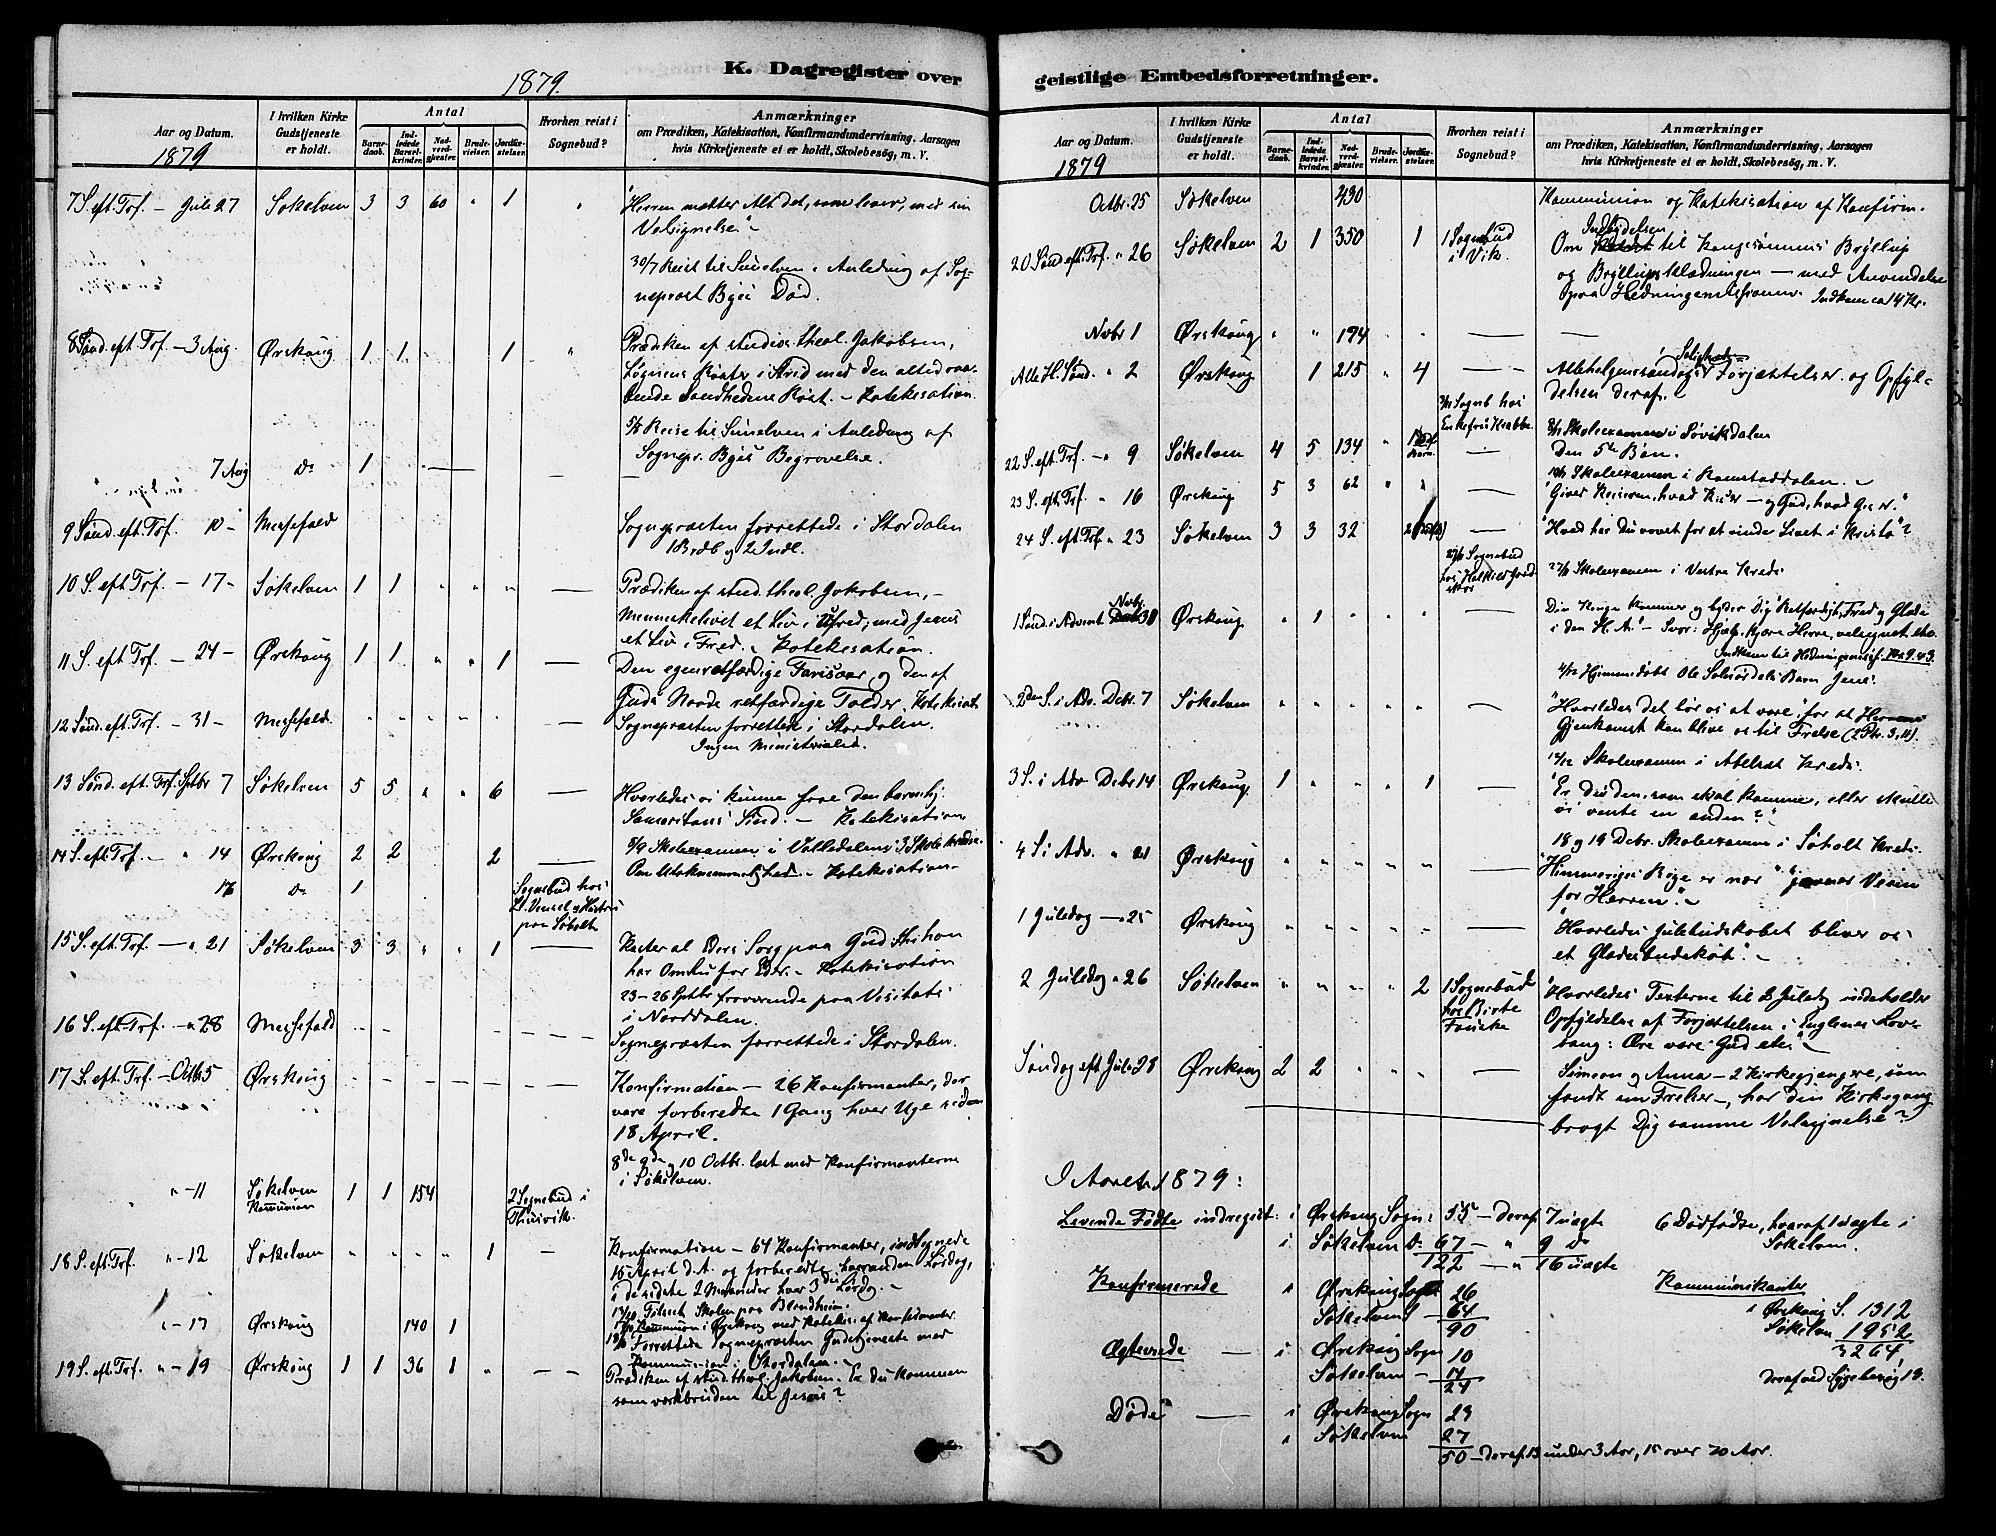 K. Dagregister over
1879.
Aar og Datum.
1879
I hvilken Kirke Gudstjeneste er holdt.
Antal
Barnedaab.
Indledede Barselkvinder.
Nadverdgjæster.
Brudevielser.
Jordfæstelser.
Hvorhen reist i Sognebud?
Anmærkninger
om Prædiken, Katekisation, Konfirmandundervisning, Aarsagen
hvis Kirketjeneste ei er holdt, Skolebesøg, m. V.
7 S. eft. Trf. — Juli 27 Søkelven 3 3 60 " 1 " "Herren mætter Alt det, som lever, med sin
Velsignelse"
30/7 Reist til Sunelven i Anledning af Sog-
neprest Død.
8 Sønd. eft. Trf. — 3 Aug Ørskoug 1 1 1 " Prædiken af studios. theol. Jakobsen,
Løgnens Røster i Strid med den altid
Sandhedens Røst. — Katekisation.
Reise til Sunelven i Anledning af
Sognepr. Begravelse.
7 Aug Do 1 — —
9 Sønd. eft. Trf. 10 — Messefald Sognepresten forrettede i Stordalen
1 Brdb og 2 Indl.
10 S. eft Trf. — 17 — Søkelven 1 1 " " " — Prædiken af stud. theol. Jakobsen, —
Menneskelivet et Liv i Ufred, med Jesus
et Liv i Fred. Katekisation.
11 S. eft Trf. — 24 — Ørskoug 1 1 " " 1 — Den egenretfærdige Farisæer og den af
Guds Naade retfærdige Tolder. Katekisat.
12 Sønd. eft Trf. — 31 — Messefald. " " " " " — Sognepresten forrettede i Stordalen.
Ingen Ministerialia.
13 Sønd. eft. Trf. Sptbr 7 Søkelven 5 5 " " 6 — Hvorledes vi kunne faae den barmhj.
Samaritans Sind. — Katekisation
14 S. eft. Trf. — " 14 Ørskoug 2 2 2 — Skoleexamen i Valledalens 3 Skolekredse.
Om Utaknemmelighed — Katekisation —
16 Do 1 Sognebud hos
paa Søholt
15 S. eft. Trf. — " 21 Søkelven 3 3 " " 1 — Kaster al Eders Sorg paa Gud thi han
har Omhu for Eder. — Katekisation
23–26 Sptbr fraværende paa Visitats
i Norddalen.
16 S. eft. Trf. — " 28 Messefald — — — — — Sognepresten forrettede i Stordalen.
17 S. eft. Trf. — Octbr 5 Ørskoug — — — — — — Konfirmation — 26 Konfirmanter, der
vare forberedte 1 Gang hver Uge siden
18 April.
8de 9de og 10 Octbr. læst med Konfirmanterne
i Søkelven.
" – 11 Søkelven
Kommunion 1 1 154 2 Sognebud i
Thusvik.
18 S. eft. Trf. " – 12 Søkelven " " " " 1 — Konfirmation — 64 Konfirmanter, indtegnede
15 April d. A. og forberedte hveranden Lørdag,
i de sidste 2 Maaneder hver 3die Lørdag. —
Tilseet Skolen paa Blindheim.
" – 17 Ørskoug 140 1 Kommunion i Ørskoug med Katekis. af Konfirmanter
Forrettede Sognepresten Gudstjeneste med
Kommunion i Stordalen. —
19 S. eft Trf. " – 19 Ørskoug 1 1 36 1 " — Prædiken af stud. theol. Jakobsen. Er du kommen
som værkbruden til Jesus?
geistlige Embedsforretninger.
Aar og Datum.
1879
I hvilken Kirke Gudstjeneste er holdt.
Antal
Barnedaab.
Indledede Barselkvinder.
Nadverdgjæster.
Brudevielser.
Jordfæstelser.
Hvorhen reist i Sognebud?
Anmærkninger
om Prædiken, Katekisation, Konfirmandundervisning, Aarsagen
hvis Kirketjeneste ei er holdt, Skolebesøg, m. V.
Octbr. 25 Søkelven 430 Kommunion og Katekisation af Konfirm.
20 Sønd eft. Trf. " 26 Søkelven 2 1 350 1 1 Sognebud
i Vik. Om Indbydelsen til Kongesønnens Bryllup
og Bryllupsklædningen — med Anvendelse
paa Hedningemissionen. Indkom ca 14 Kr.
Novbr 1 Ørskoug " " 194 — —
Alle H. Sønd. " 2 Ørskoug 1 215 " 4 — Allehelgenssøndags Saligheds Forjættelser og Opfyl-
delsen deraf.
Sogneb hos
Enkefru
Skoleexamen i Søvikdalen
22 S. eft. Trf. — " 9 Søkelven 4 5 134 " — Den 5te Bøn.
Skoleexamen i Ramstaddalen. —
23 S. eft. Trf " 16 Ørskoug 5 3 62 " " — "Giver Keiseren, hvad Keis. er — og Gud, hvad Gs er."
24 S. eft. Trf. " 23 Søkelven 3 3 32 2 — "Hvad har Du vovet for at vinde Livet i Kristo"?
Sognebud
Skoleexamen i Vestre Kreds
1 Sønd. i Advent Novbr 30 Ørskoug " 1 " " " — Din Konge kommer og byder Dig Retfærdighed, Fred og Glæde
i den H. A. — Svar: Hjælp, kjære Herre, velsignet etc.
Indkom til Hedningemiss. Kr 9.43.
Hjemmedøbt Ole Solnørdals Barn Jens.
2den S. i Adv. Debr. 7 Søkelven " " " " " — "Hvorledes det bør os at være for at Herrens
Gjenkomst kan blive os til Frelse (2 Ptr. 3, 11).
Skoleexamen i Abelset Kreds.
3 S. i Adv Debr 14 Ørskoug. 1 " " " 1 — "Er du den, som skal komme, eller skulle
vi vente en anden?"
18 og 19 Debr. Skoleexamen i Søholt Kreds.
4 S i Adv. " 21 Ørskoug " " " " " — "Himmeriges Rige er nær" "jævner Veien
for Herren". —
1 Juledag — " 25 Ørskoug " " " " " — "Hvorledes Julebudskabet bliver os
et Glædesbudskab". —
2 Juledag " 26 Søkelven " " " " 2 1 Sognebud
hos Birte "Hvorledes Texterne til 2 Juledag indeholder
Opfyldelse af Forjættelsen i Englenes Lov-
sang: Ære være Gud etc."
Søndag eft. Jule 28 Ørskoug 2 2 " " " — Simeon og Anna — 2 Kirkegjængere, som
fandt sin Frelser —, har din Kirkegang
bragt Dig samme Velsignelse?
I Aaret 1879:
Levende Fødte indregist. i Ørskoug Sogn: 55 — deraf 7 uægte 6 Dødfødte, hvoraf 1 uægte i
i Søkelven Do 67 — " 9 Do Søkelven.
122 — " 16 uægte
Konfirmerede i Ørskoug Sogn 26 Kommunikanter
Søkelven S — 64 i Ørskoug S. 1312
90 Søkelven 1952
3264
Ægteviede — i Ørskoug Sogn 10
Søkelven — 14 deraf ved Sygebesøg 19.
24
Døde — i Ørskoug Sogn 23
i Søkelven 27
50 — deraf 13 under 3 Aar, 15 over 70 Aar.